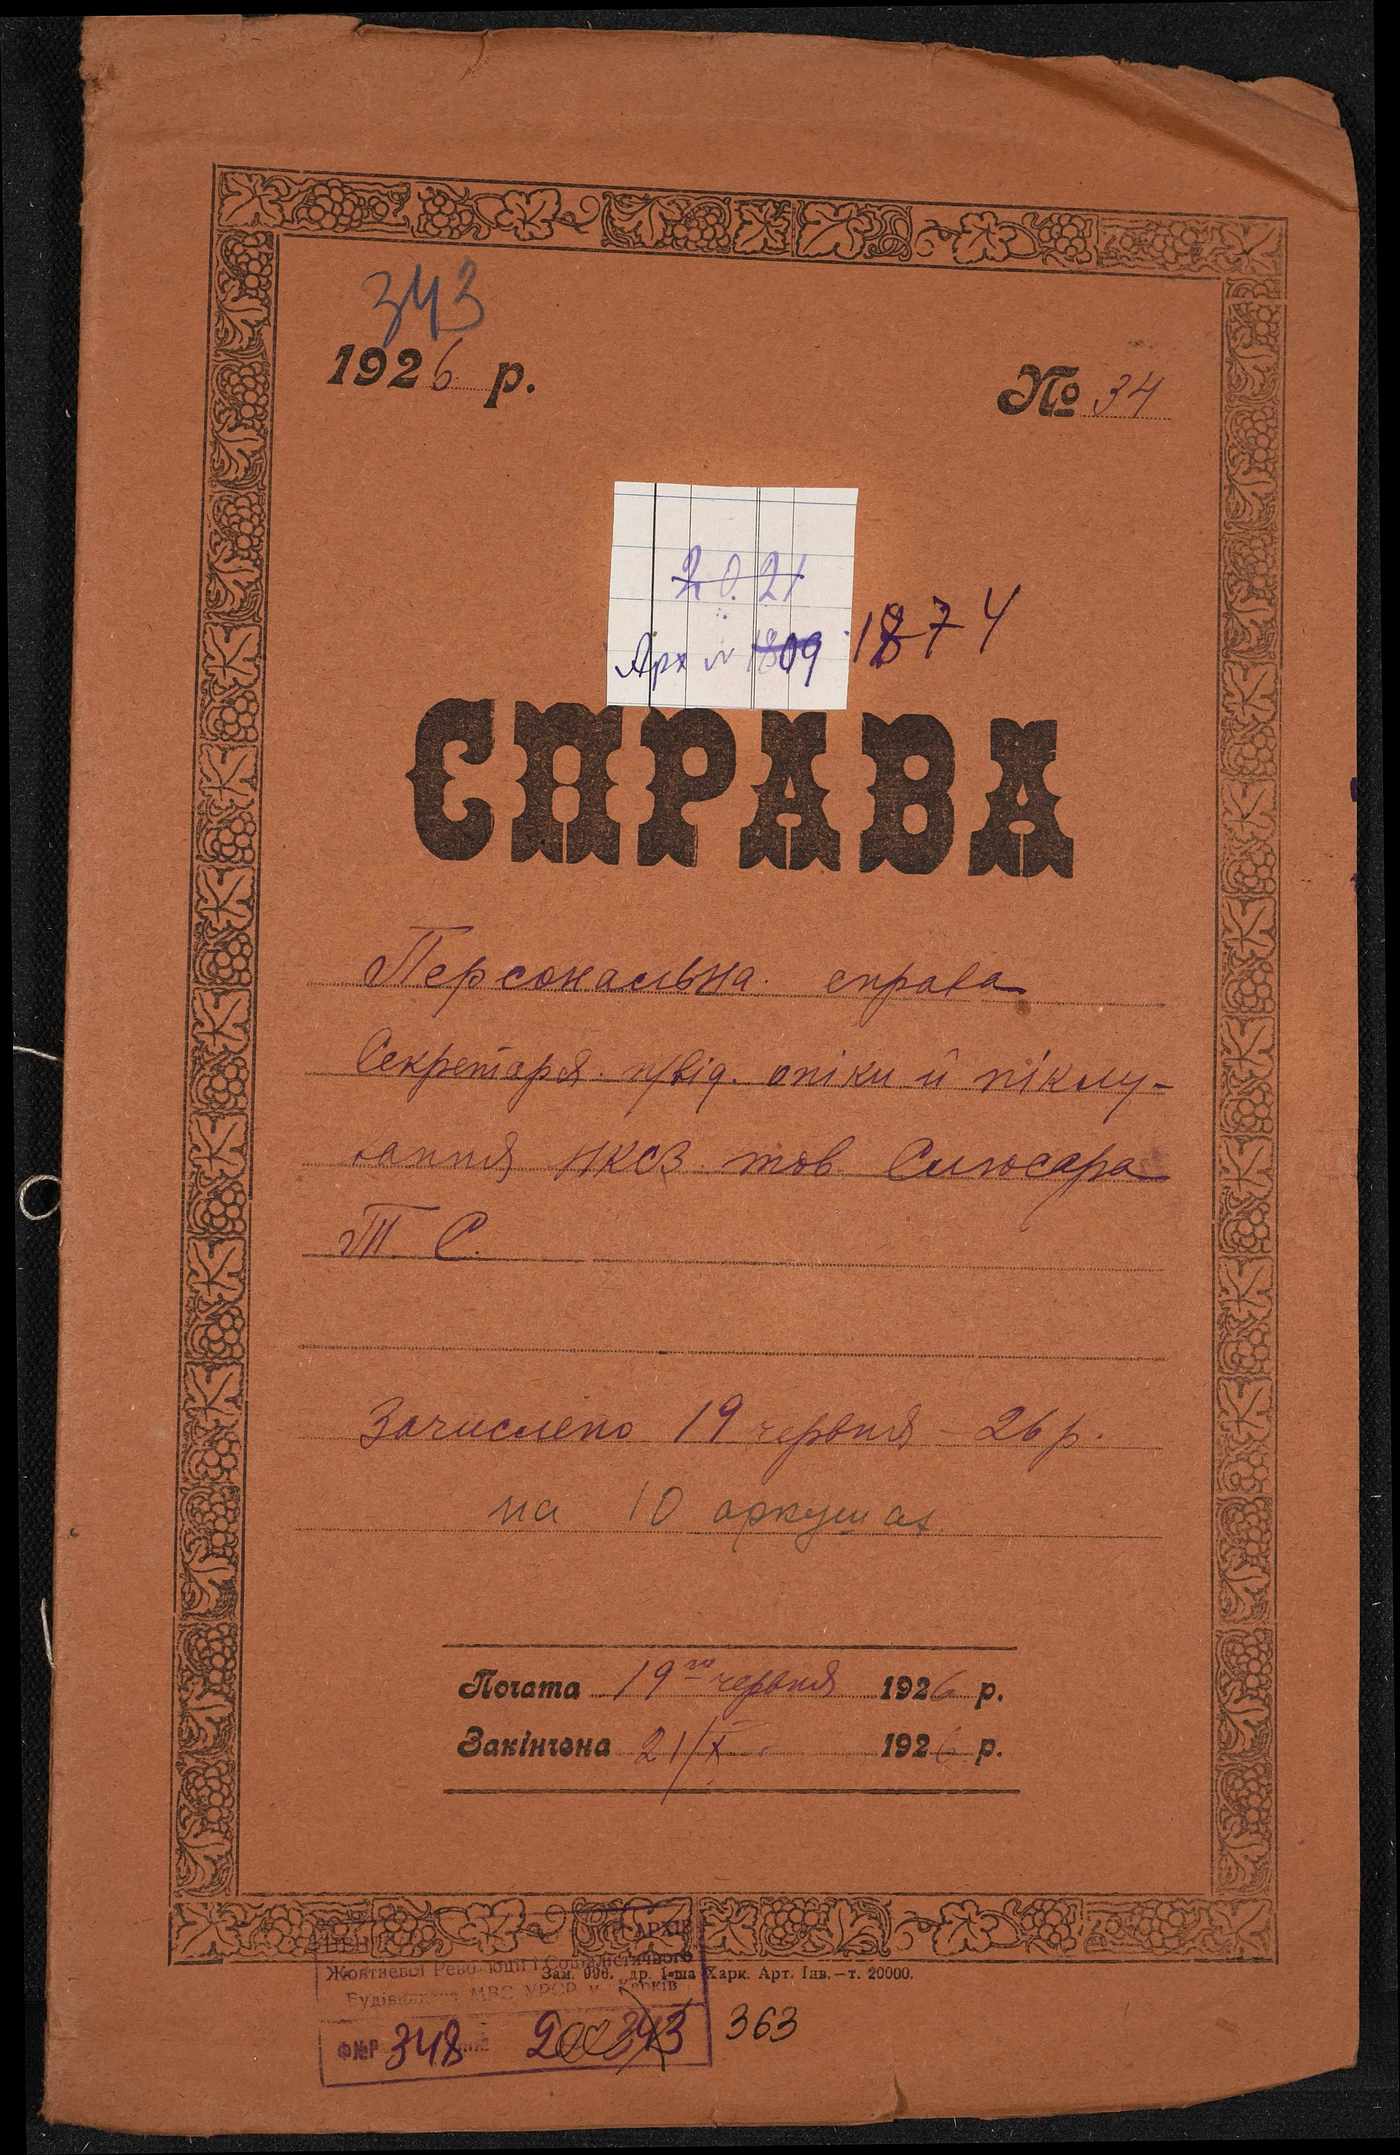 343
1926 р.
№ 34
20.21
Арх № 1809 1874
СПРАВА
Персональна справа
Секретаря п/від. опіки й піклу-
вання НКСЗ тов. Слюсара
Т. С.
Зачислено 19 червня – 26 р.
на 10 аркушах
Почата 19го червня 1926 р.
Закінчена 21/X 1926 р.
АРХІВ
Жовтневої Революції і Соціалістичного
Будівництва МВС УРСР у Харкові
Зам. 996. др. 1-ша Харк. Арт. Інв.—т. 20000.
Ф№Р 348 343 363